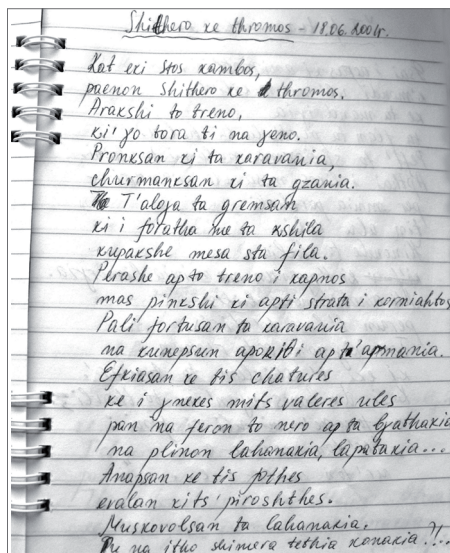 Shithero ke thromos - 18.06.2001r.
Kat eki stos kambos,
paenon shithero ke thromos.
Arakshi to treno,
ki' yo tora ti na yeno.
Pronksan ki ta karavania,
churmanksan ki ta gzania.
T'aloga ta gremsan
ki i foratha me ta kshila
kupakshe mesa sta fila.
Perashe ap to treno i kapnos
mas pinkshi ki apti strata i korniahtos
Pali fortusan ta karavania
na kunepsun apokithi apt' apmania.
Efkiasan ke tis chatures
ke i ynekes mifs valeres ules
pan na feron to nero ap ta byathakia
na plinon lahanakia, lapatakia...
Anapsan ke tis fothes
evalan kits' piroshthes.
Muskovolsan ta lahanakia.
na itho shimera tethia konakia?!..